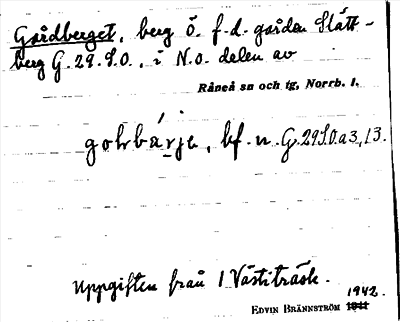 Gårdberget, berg ö. f.d. gården Slätt-
berg G. 29. S.O., i N.o. delen av
Råneå sn och tg, Norrb. l.
bf. n. G. 29 S.O. a 3, 13.
Uppgiften från 1 Västiträsk.
1942.
EDVIN BRÄNNSTRÖM 1941